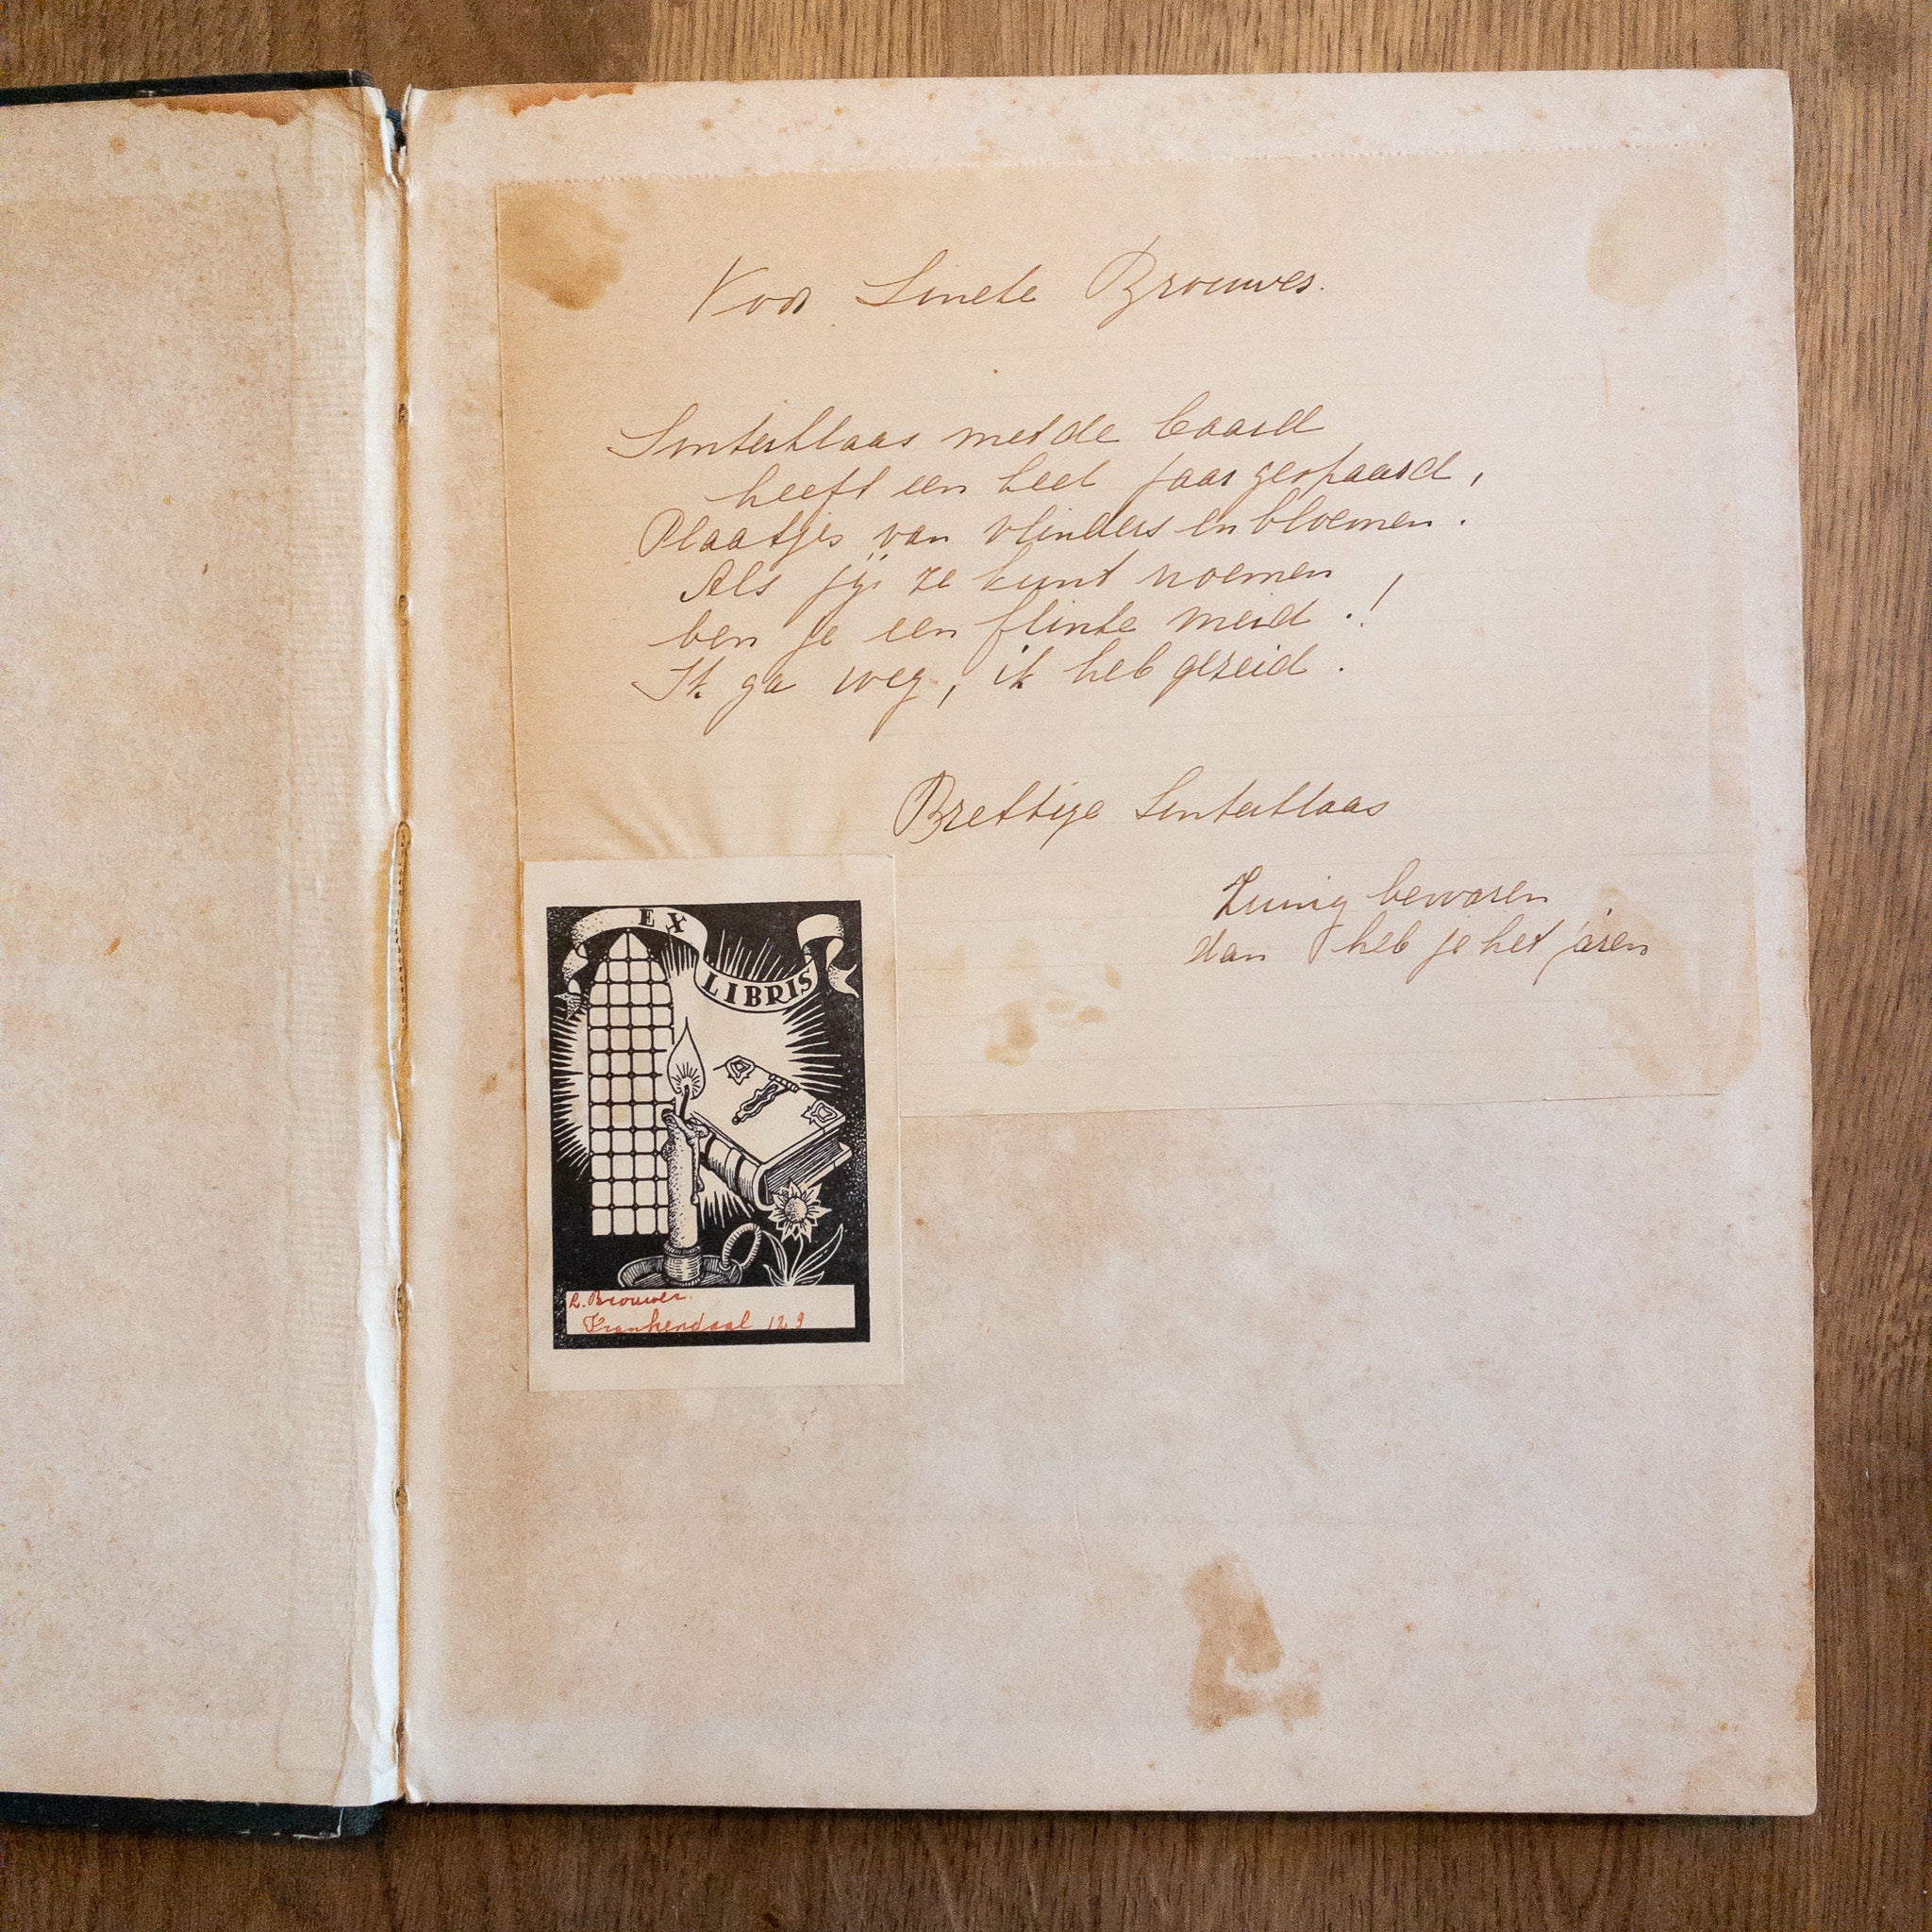 Voor Lineke Brouwer.
Sinterklaas met de baard
heeft een heel jaar gespaard,
Plaatjes van vlinders en bloemen.
Als jij ze kunt noemen
ben je een flinke meid.!
Ik ga weg, ik heb gezeid.
Prettige Sinterklaas
Zuinig bewaren
dan heb je het jaren
EX
LIBRIS
R. Brouwer.
Frankendaal 129